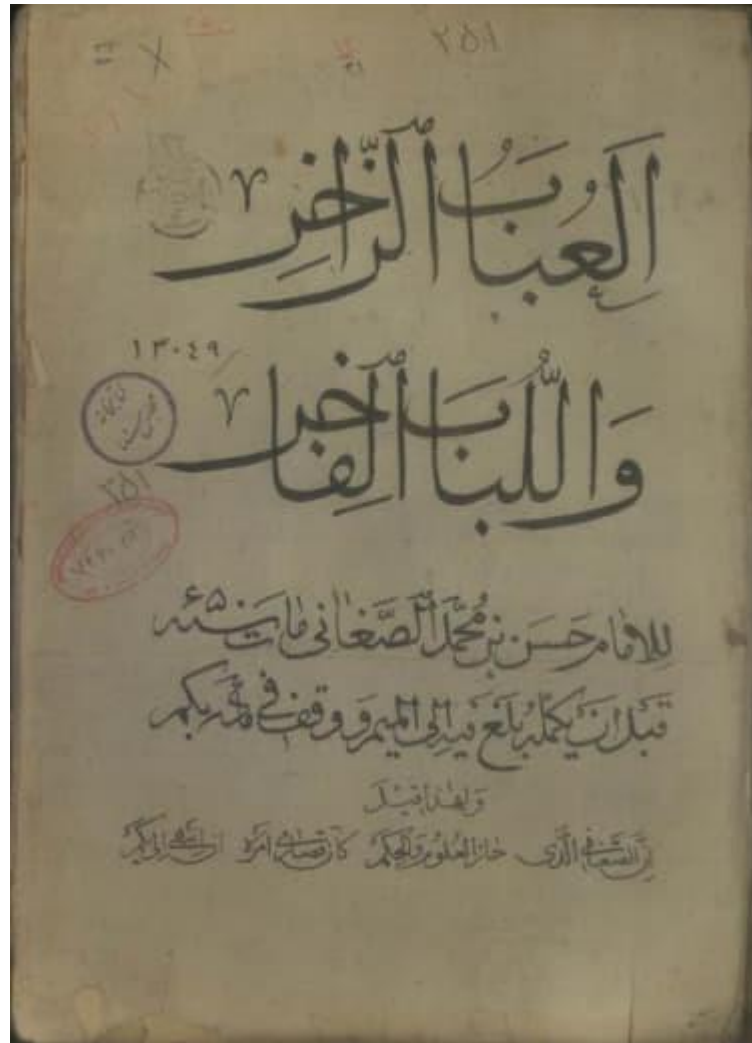 ٢٥١
العُبَابُ الزَّاخِر
١٣٠٤٩
وَاللُّبَابُ الفَاخِر
٢٥١
للامام حَسَن بن مُحَمَّد الصَّغَانى مات سنة ٦٥٠
قبل ان يكمله بلغ فيه الى الميم ووقف فى مادة بكم
ولهذا قيل
ان الصغانى الذى حاز العلوم والحكم كان قصارى امره ان انتهى الى بكم